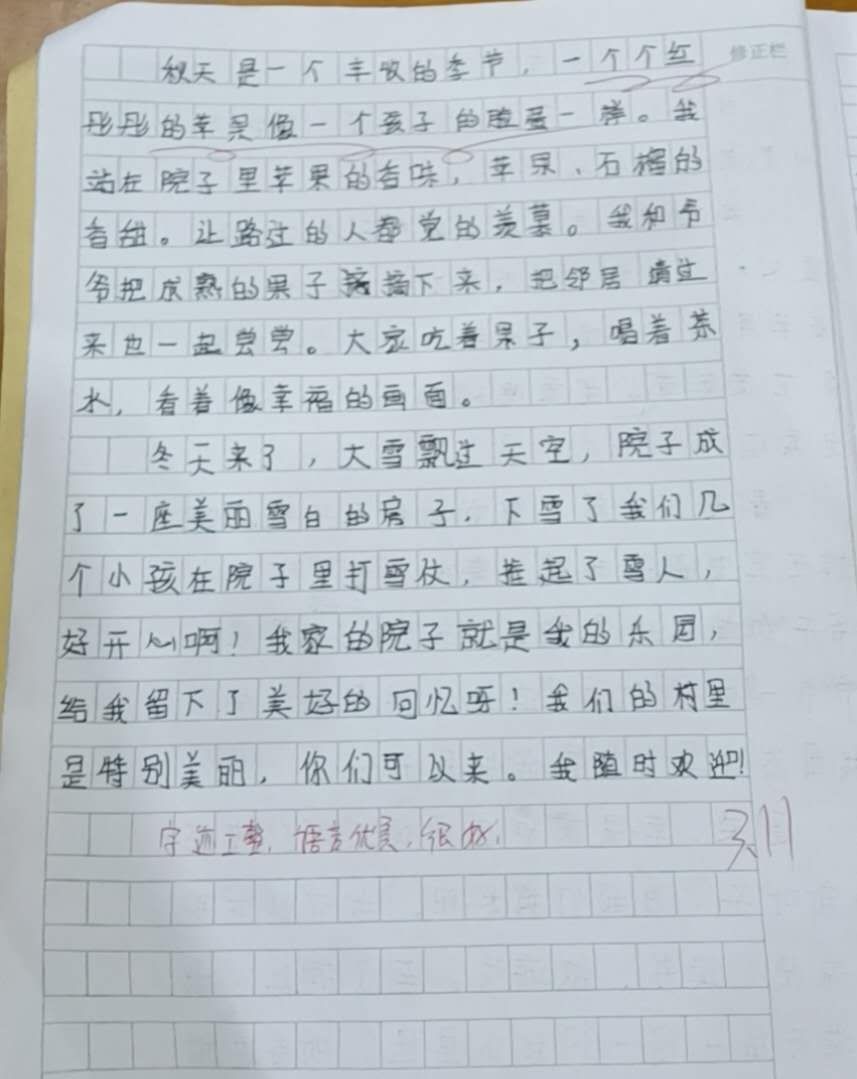 秋天是一个丰收的季节，一个个红
修正栏
彤彤的苹果像一个孩子的脸蛋一样。我
站在院子里苹果的香味，苹果、石榴的
香甜。让路过的人都觉的羡慕。我和爷
爷把成熟的果子摘下来，把邻居请过
来也一起尝尝。大家吃着果子，喝着茶
水，看着像幸福的画面。
冬天来了，大雪飘过天空，院子成
了一座美丽雪白的房子，下雪了我们几
个小孩在院子里打雪仗，堆起了雪人，
好开心啊！我家的院子就是我的乐园，
给我留下了美好的回忆呀！我们的村里
是特别美丽，你们可以来。我随时欢迎！
字迹工整，语言优美，很好。
3.11